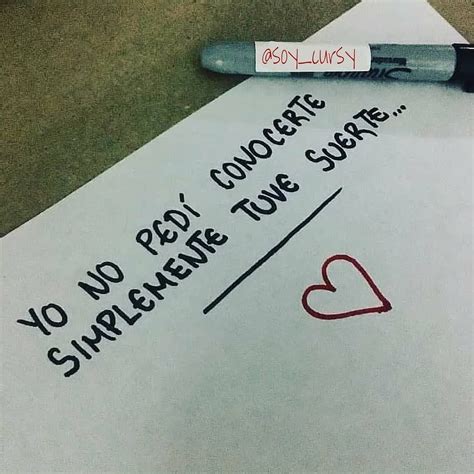 @soy_cursy
YO NO PEDÍ CONOCERTE
SIMPLEMENTE TUVE SUERTE...